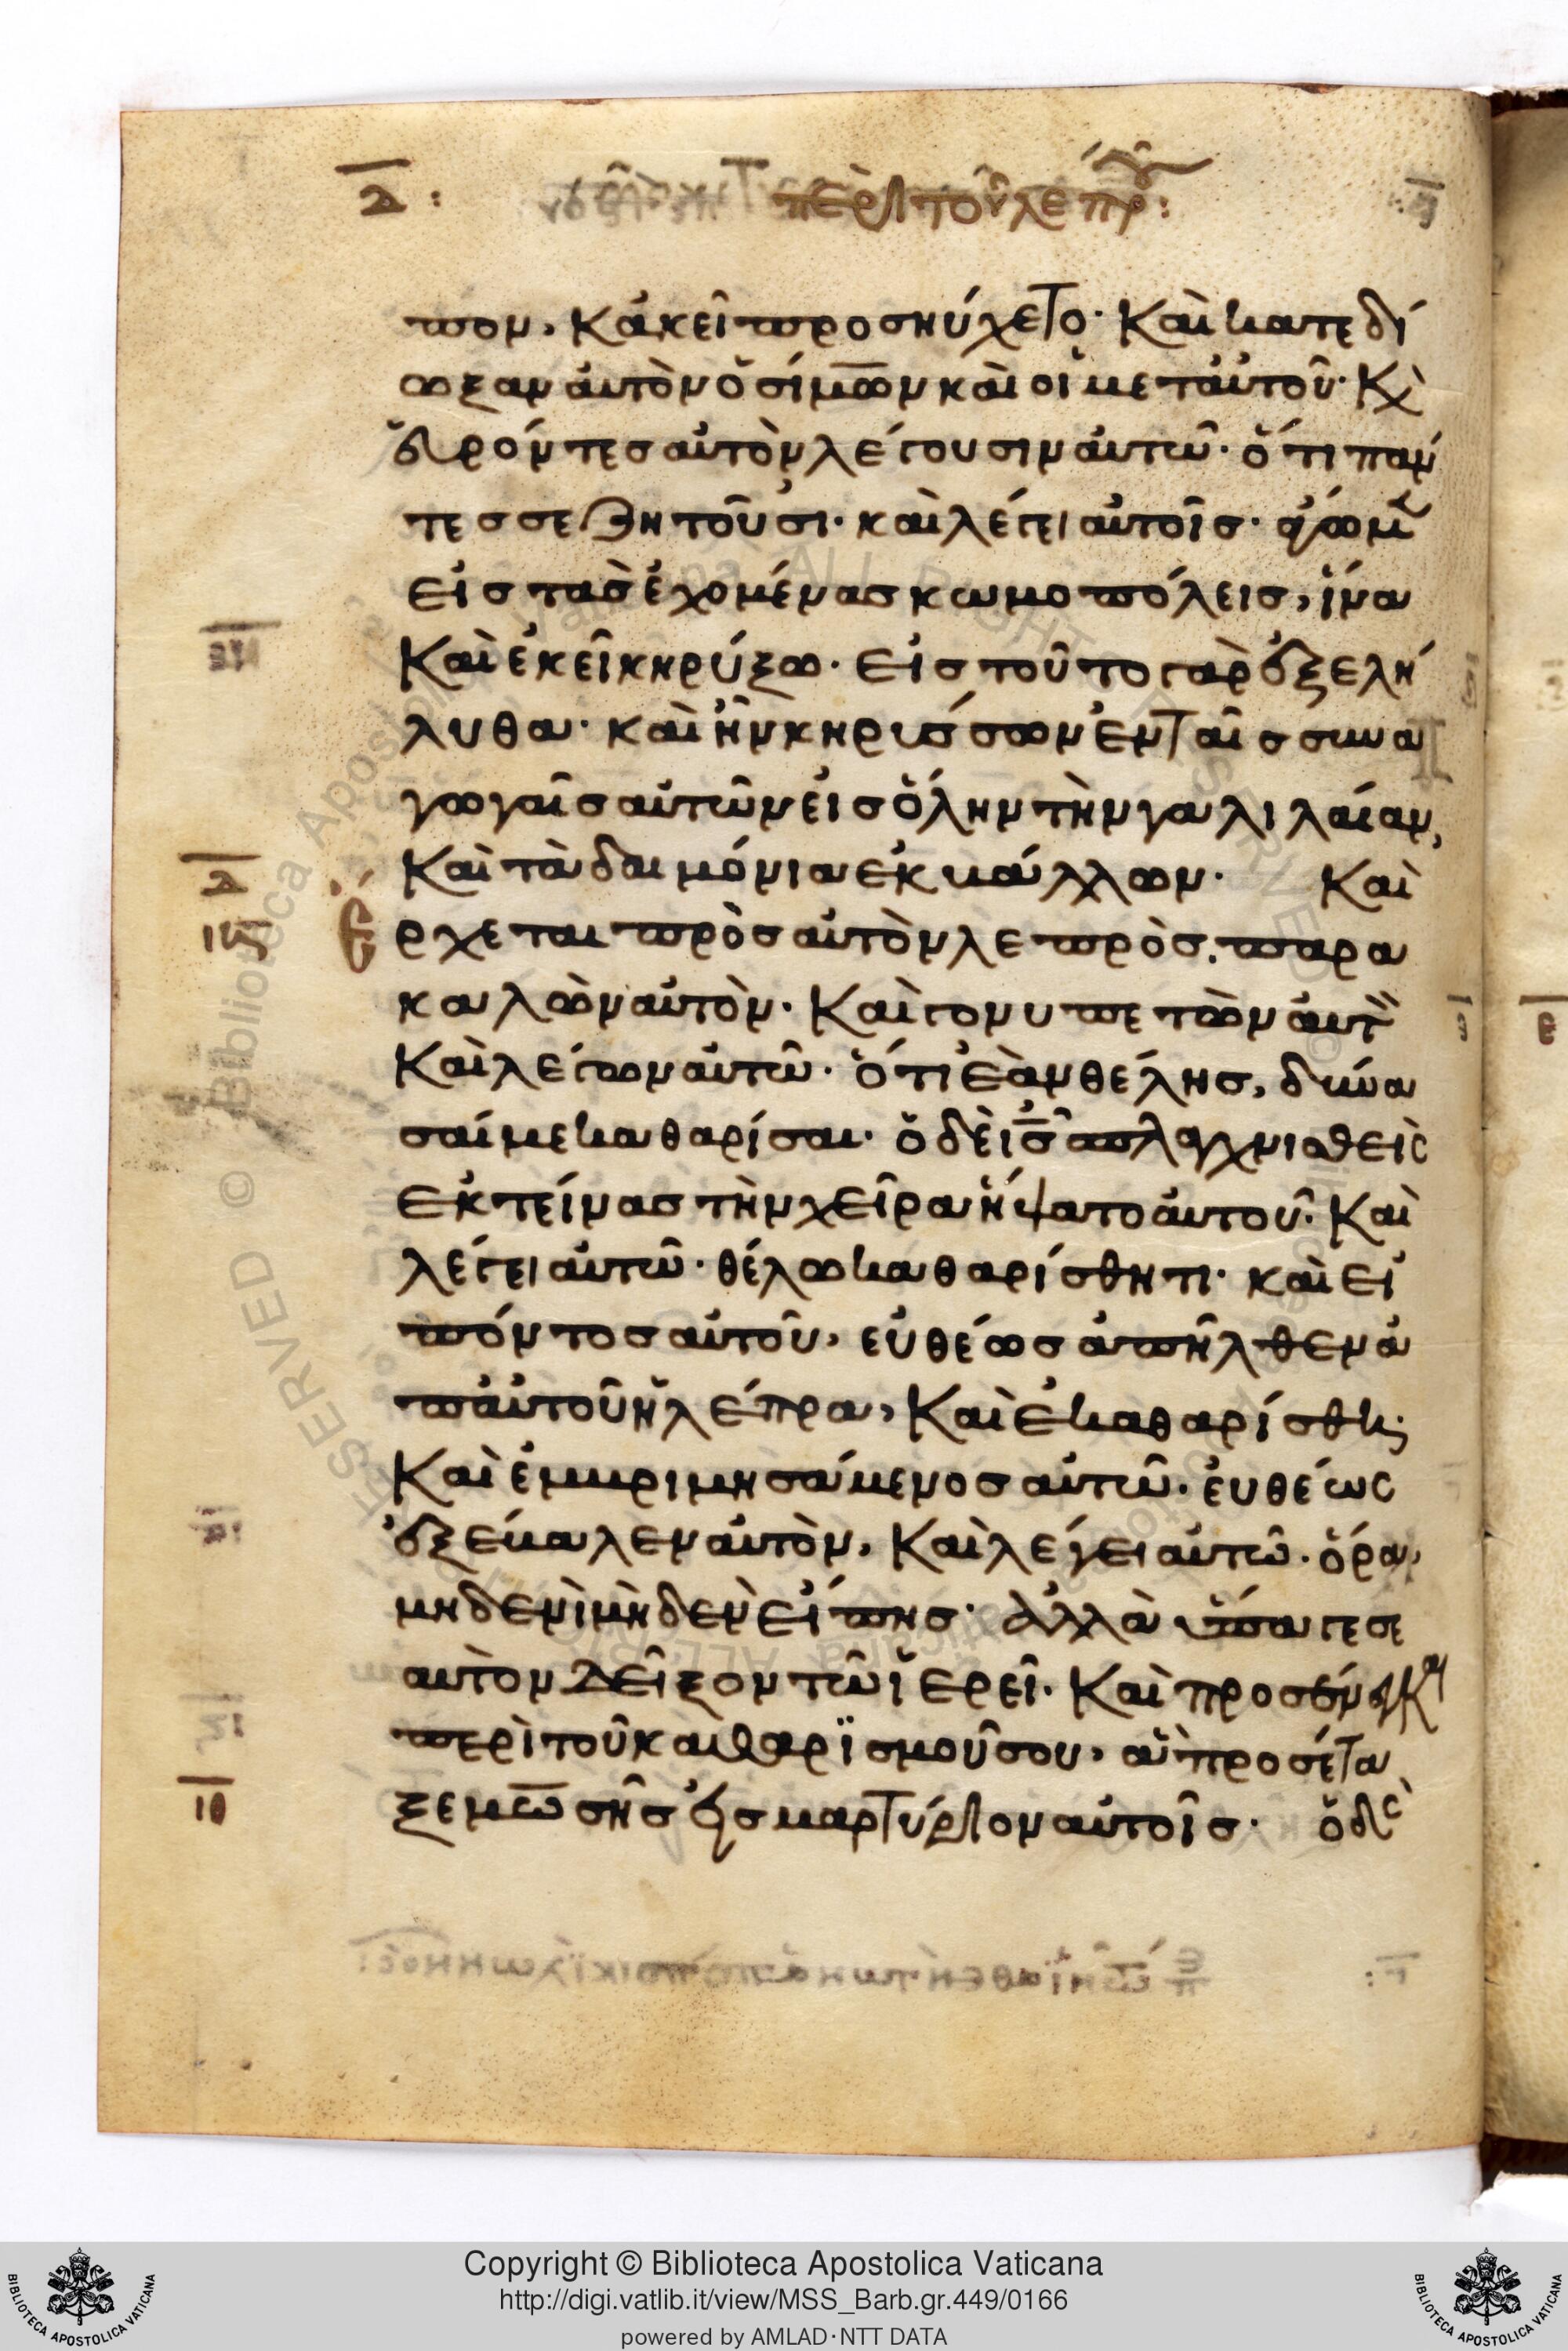 δ: περὶ τοῦ λεπροῦ:
πον, κἀκεῖ προσηύχετο· Καὶ κατεδί
ωξαν αὐτὸν ὁ σίμων καὶ οἱ μετ αὐτοῦ· Κὶ
εὑρόντες αὐτὸν λέγουσιν αὐτῶ· ὅτι πάν
τες σε ζητοῦσι· καὶ λέγει αὐτοῖς· ἄγωμεν
εἰς τὰς ἐχομένας κωμοπόλεις, ἵνα
Καὶ ἐκεῖ κηρύξω· εἰς τοῦτο γὰρ ἐξελή
λυθα· καὶ ἦν κηρύσσων ἐν ταῖς συνα
γωγαῖς αὐτῶν εἰς ὅλην τὴν γαλιλαίαν,
Καὶ τὰ δαιμόνια ἐκβάλλων· Καὶ
ἔρχεται πρὸς αὐτὸν λεπρὸς, παρα
καλῶν αὐτὸν· Καὶ γονυπετῶν αὐτὸν
Καὶ λέγων αὐτῶ· ὅτι ἐὰν θέλης, δύνα
σαί με καθαρίσαι· ὁ δὲ ις σπλαγχνισθεὶς
ἐκτείνας τὴν χεῖρα ἥψατο αὐτοῦ· Καὶ
λέγει αὐτῶ· θέλω καθαρίσθητι· καὶ εἰ
πόντος αὐτοῦ, εὐθέως ἀπῆλθεν ἀ
π αὐτοῦ ἡ λέπρα, Καὶ ἐκαθαρίσθη·
Καὶ ἐμβριμησάμενος αὐτῶ· ευθέως
ἐξέβαλεν αὐτὸν, Καὶ λέγει αὐτῶ· ὅρα,
μηδενὶ μηδὲν εἴπης· ἀλλὰ ὕπαγε σε
αυτὸν δεῖξον τῶ ἱερεῖ· Καὶ προσένεγκαι
περὶ τοῦ καθαρϊσμοῦ σου, ἃ προσέτα
ξε μωσῆς εἰς μαρτύριον αὐτοῖς· ὁ δὲ
η
δ
ιη
ιθ
Copyright © Biblioteca Apostolica Vaticana
http://digi.vatlib.it/view/MSS_Barb.gr.449/0166
powered by AMLAD·NTT DATA
BIBLIOTECA APOSTOLICA VATICANA
BIBLIOTECA APOSTOLICA VATICANA